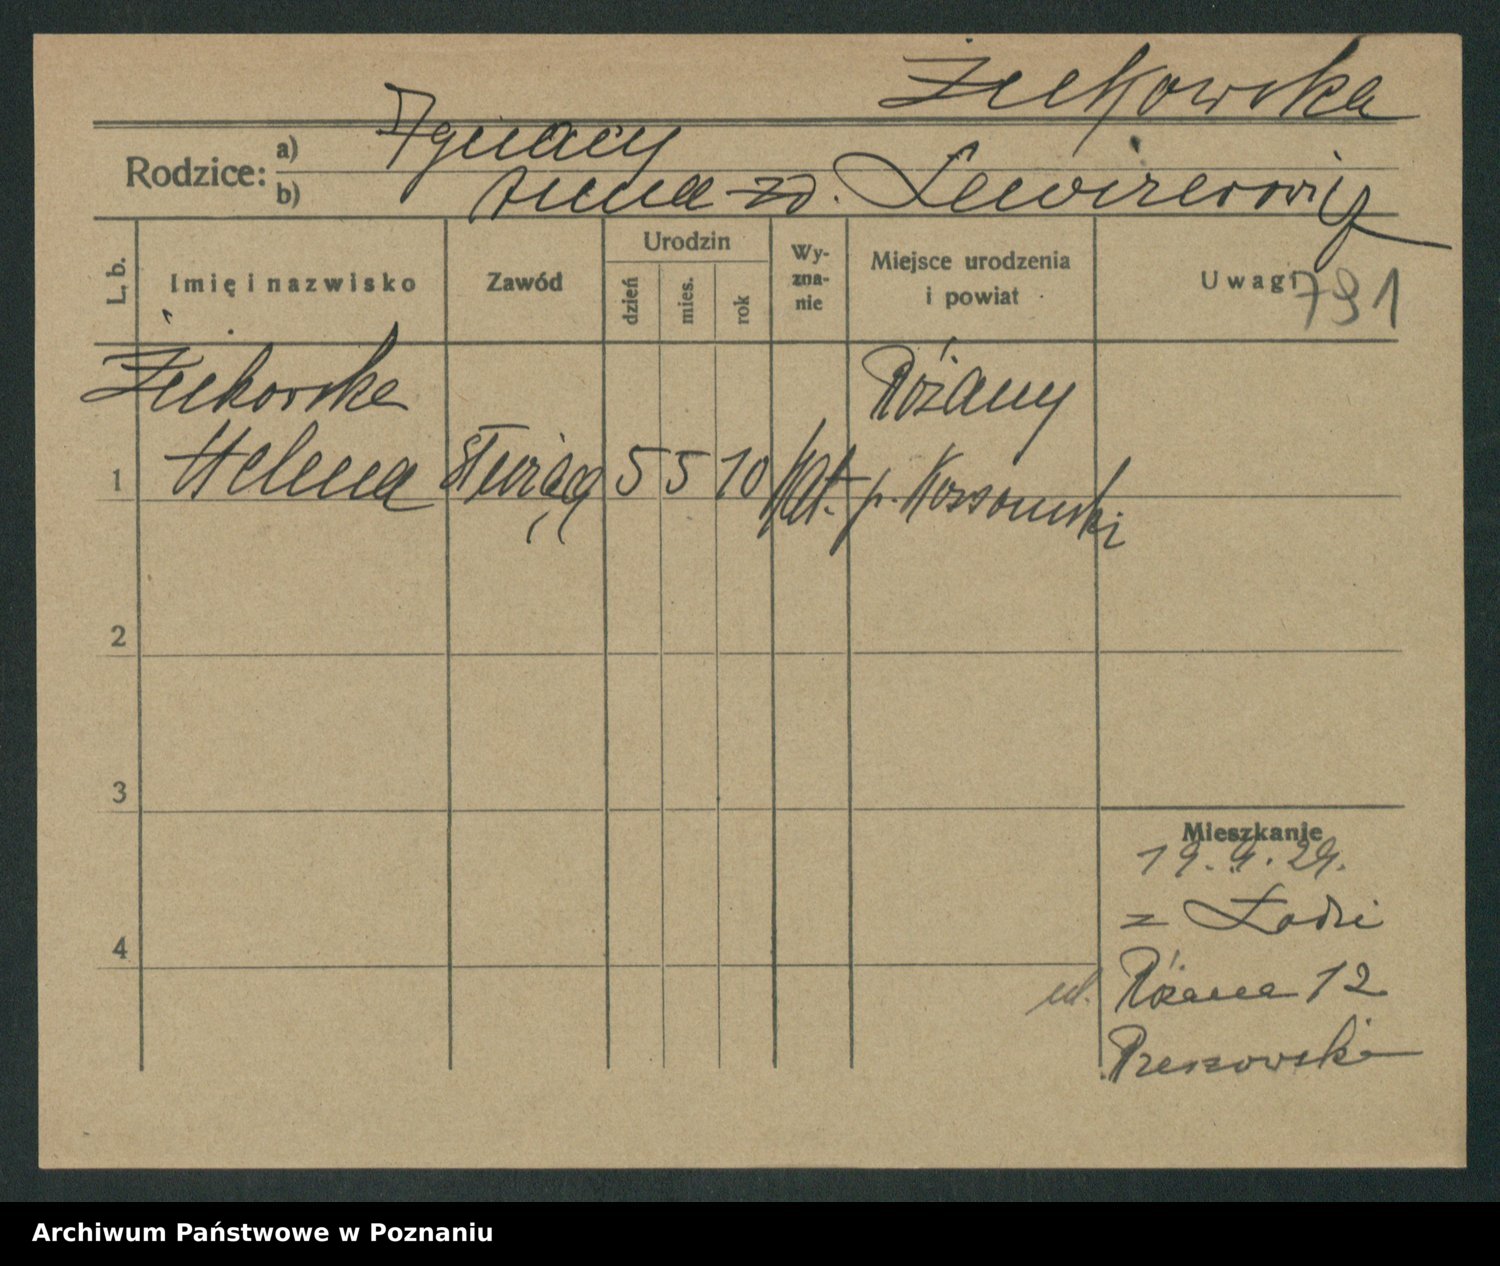 Żukowska
Rodzice:
a) Ignacy
b) Anna zd.
L. b.
Imię i nazwisko
Zawód
Urodzin
dzień
mies.
rok
Wy-
zna-
nie
Miejsce urodzenia
i powiat
Uwagi
791
Żukowska
Różany
1 Helena służąca 5 5 10 kat. p. Kossowski
2
3
4
Mieszkanie
z Łodzi
ul. Różana 12
Archiwum Państwowe w Poznaniu